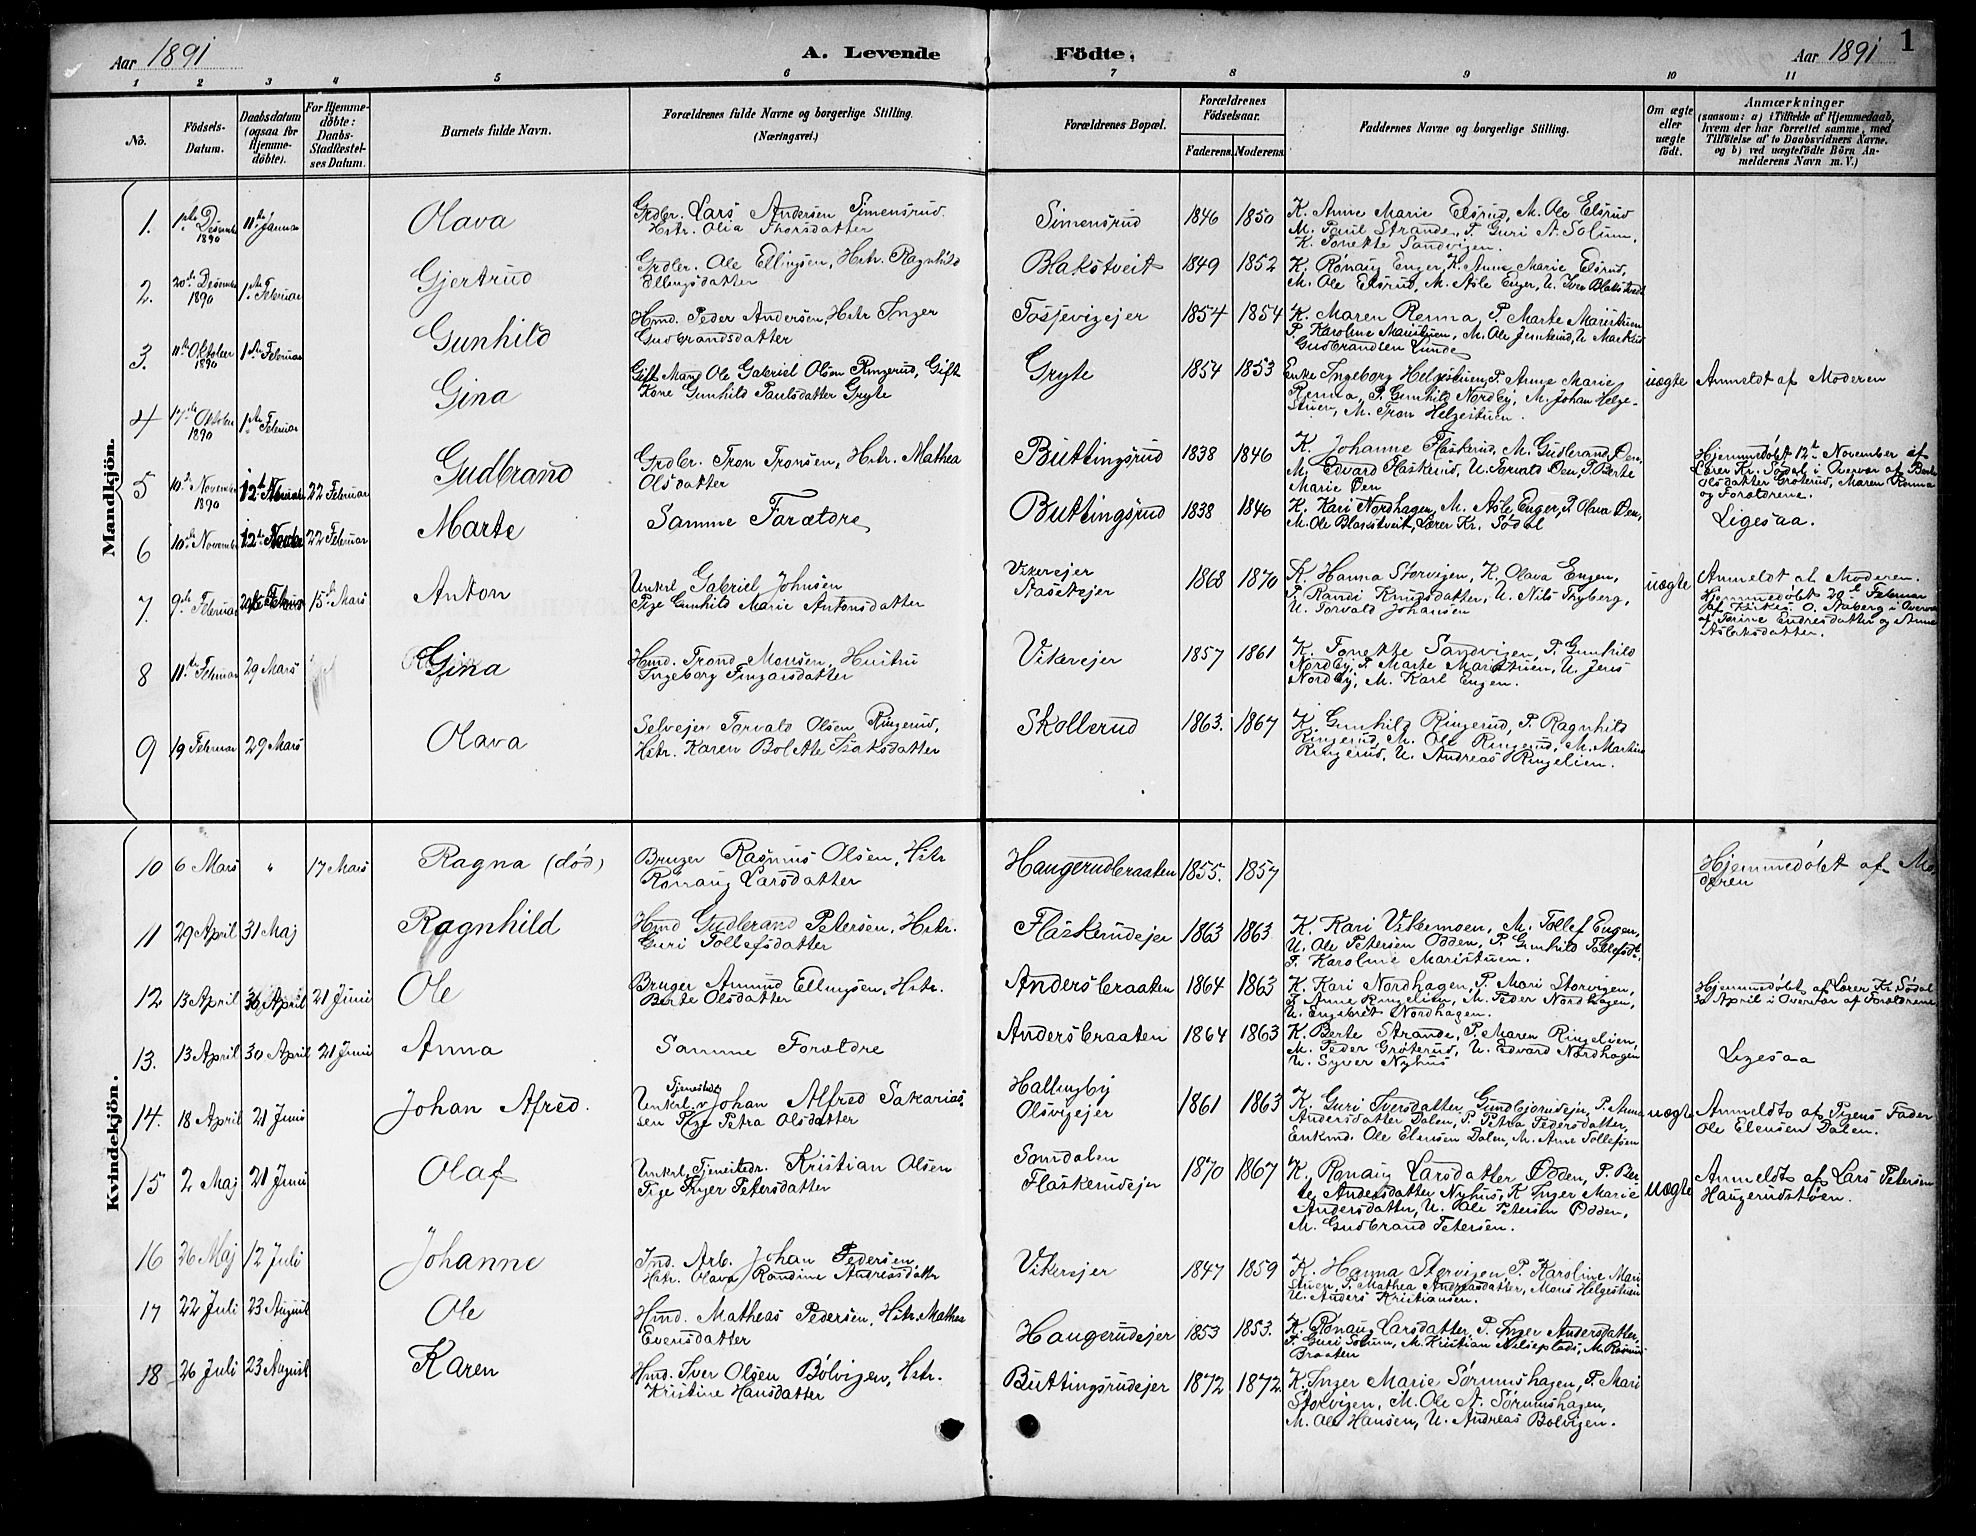 Aar 1891
A. Levende
Födte.
Aar 1891
1
1 2 3 4 5 6 7 8 9 10 11
No.
Födsels-Datum.
Daabsdatum (ogsaa for Hjemme-döbte).
For Hjemme-döbte: Daabs-Stadfæstel-ses Datum.
Barnets fulde Navn.
Forældrenes fulde Navne og borgerlige Stilling. (Næringsvei.)
Forældrenes Bopæl.
Forældrenes Födselsaar.
Faderens. Moderens.
Faddernes Navne og borgerlige Stilling.
Om ægte eller uægte födt.
Anmærkninger
(saasom: a) i Tilfælde af Hjemmedaab, hvem der har forrettet samme, med Tilföielse af to Daabsvidners Navne, og b) ved uægtefödte Börn An-melderens Navn m. V.)
Mandkjön.
1. 1ste Desember 1890 11te Januar
Olava
Grdbr. Lars Andersen Simensrud.
Hstr. Olia Thorsdatter
Simensrud 1846 1850
K. Anne Marie Elsrud, M. Ole Elsrud
M. Paul Strande, P. Guri A. Solum,
K. Tonette Sandvigen.
2. 20de Desember 1890 1ste Februar
Gjertrud
Grdbr. Ole Ellingsen, Hstr. Ragnhild
Ellingsdatter
Blakstveit 1849 1852
K. Rønaug Enger, K. Anne Marie Elsrud,
M. Ole Elsrud, M. Asle Enger, U. Iver Blakstvedt
3. 11te Oktober 1890 1ste Februar
Gunhild
Hmd. Peder Andersen, Hstr Inger
Gudbrandsdatter
Tosjevigejer 1854 1854
K. Maren Renna, P. Marte Maristuen
P. Karoline Maristuen, M. Ole Jensterud, U. Markus
Gudbrandsen Lunde
4 17de Oktober 1890 1ste Februar
Gina
Gift Mand Ole Gabriel Olsen Ringerud, Gift
Kone Gunhild Paulsdatter Gryte
Gryte 1854 1853
Enke Ingeborg Helgestuen, P. Anne Marie
Renna, P. Gunhild Nordby, M. Johan Helge-
stuen, M. Tron Helgestuen.
uægte Anmeldt af Moderen
5 10de November 1890 12te November 22 Februar
Gudbrand
Grdbr. Tron Tronsen, Hstr. Mathea
Olsdatter
Buttingsrud 1838 1846
K. Johanne Flaskerud, M. Gudbrand Øen,
M. Edvard Flaskerud, U. Torvald Øen, P. Berte
Marie Øen
Hjemmedøbt 12te November af
Lærer Kr. Sødal i Overvær af Berte
Olsdatter Grøterud, Maren Renna
og Forældrene.
6 10de November 12te November 22 Februar
Marte
Samme Forældre
Buttingsrud 1838 1846
K. Kari Nordhagen, M. Asle Enger, P. Olava Øen,
M. Ole Blakstveit, Lærer Kr. Sødal
Ligesaa.
7. 9de Februar 20de Februar 15de Mars
Anton
Unkrl Gabriel Johnsen
Pige Gunhild Marie Antonsdatter
Vikerejer
Aasetejer 1868 1870
K. Hanna Storvigen, K. Olava Engen,
P. Randi Knudsdatter, U. Nils Tryberg,
U. Torvald Johansen
uægte Anmeldt af Moderen.
Hjemmedøbt 20de Februar
af Kirkes. O. Aaberg i Overvær
af Torine Endresdatter og Anne
Aslaksdatter.
8 11te Februar 29 Mars
Gina
Hmd. Trond Monsen, Hustru
Ingeborg Fingarsdatter
Vikerejer 1857 1861
K. Tonette Sandvigen, P. Gunhild
Nordby, P. Marte Maristuen, U. Jens
Nordby, M. Karl Engen.
9 19 Februar 29 Mars
Olava
Selvejer Torvald Olsen Ringerud,
Hstr. Karen Bolette Isaksdatter
Skollerud 1863. 1867
K. Gunhild Ringerud, P. Ragnhild
Ringerud, M. Ole Ringerud, M. Martin
Ringerud, U. Andreas Ringelien.
Kvindekjön.
10 6 Mars " 17 Mars
Ragna (død)
Bruger Rasmus Olsen, Hstr
Rønaug Larsdatter
Haugerudbraaten 1855. 1857
Hjemmedøbt af Mo-
deren
11 29 April 31 Maj
Ragnhild
Hmd Gudbrand Petersen, Hstr.
Guri Tollefsdatter
Flaskerudejer 1863 1863
K. Kari Vikemoen, M. Tollef Engen,
U. Ole Petersen Odden, P. Gunhild Tollefsdt.
P. Karoline Maristuen.
12 13 April 30 April 21 Juni
Ole
Bruger Amund Ellingsen, Hstr.
Berte Olsdatter
Andersbraaten 1864 1863
K. Kari Nordhagen, P. Mari Storvigen,
P. Anne Ringelien, M. Peder Nordhagen,
U. Engebret Nordhagen.
Hjemmedøbt af Lærer Kr. Sødal
30 April i Overvær af Forældrene
13. 13 April 30 April 21 Juni
Anna
Samme Forældre
Andersbraaten 1864 1863
K. Berte Strande, P. Maren Ringelien,
M. Peder Grøterud, U. Edvard Nordhagen
U. Syver Nyhus
Ligesaa
14. 18 April 21 Juni
Johan Afred.
Unkrl. Tjenestedr Johan Alfred Sakarias-
sen Pige Petra Olsdatter
Hallingby
Olsvigejer 1861 1863
K. Guri Iversdatter Gundbjørudejer, P. Anna
Andersdatter Dalen, P. Petra Pedersdatter,
Enkmd. Ole Elensen Dalen, M. Arne Tollefsen
uægte Anmeldt af Pigens Fader
Ole Elensen Dalen.
15 2 Maj 21 Juni
Olaf
Unkrl. Tjenestedr. Kristian Olsen
Pige Inger Petersdatter
Somdalen
Flaskerudejer 1870 1867
K. Rønaug Larsdatter Odden, P. Ber-
te Andersdatter Nyhus, K. Inger Marie
Andersdatter, U. Ole Petersen Odden,
M. Gudbrand Petersen.
uægte Anmeldt af Lars Petersen
Haugerudstøen.
16 26 Maj 12 Juli
Johanne
Ind. Arb. Johan Pedersen,
Hstr. Olava Randine Andreasdatter
Vikerejer 1847 1859
K. Hanna Storvigen, P. Karoline Mari-
stuen, P. Mathea Andreasdatter, Mons Helgestuen
U. Anders Kristiansen.
17 22 Juli 23 August
Ole
Hmd. Mathias Pedersen, Hstr. Mathea
Evensdatter
Haugerudejer 1853 1853.
K. Rønaug Larsdatter, P. Inger Andersdatter,
P. Guri Solum, M. Kristian Nilseplads, M. Rasmus
Braaten
18 26 Juli 23 August
Karen
Hmd. Iver Olsen Bølvigen, Hstr.
Kristine Hansdatter
Buttingsrudejer 1872 1872.
K. Inger Marie Sørumshagen, P. Mari
Storvigen, M. Ole A. Sørumshagen,
M. Ole Hansen, U. Andreas Bølvigen.